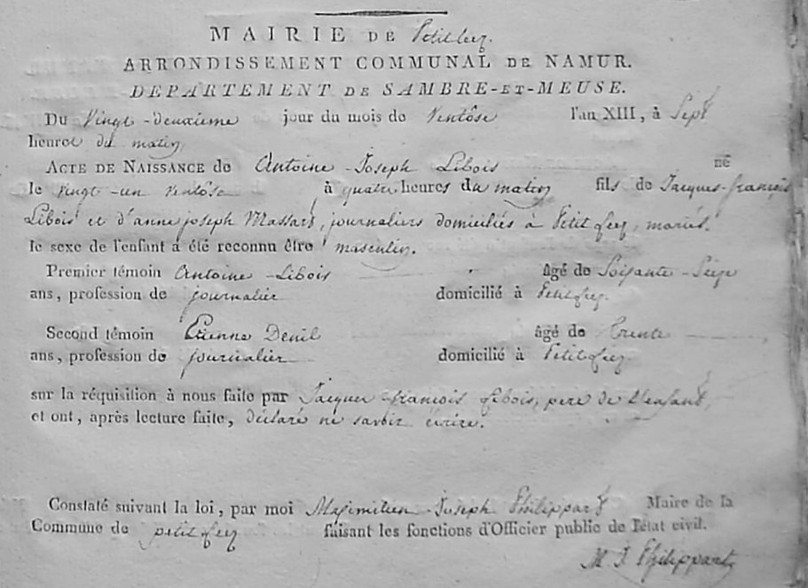 MAIRIE DE Petit leez.
ARRONDISSEMENT COMMUNAL DE NAMUR.
DEPARTEMENT DE SAMBRE-ET-MEUSE.
Du Vingt-deuxieme jour du mois de Ventôse l'an XIII, à Sept
heures du matin
ACTE DE NAISSANCE de Antoine-Joseph Libois né
le vingt-un ventôse à quatre heures du matin fils de Jacques-françois
Libois et d'anne joseph Massart, journaliers domiciliés à Petit leez, mariés.
le sexe de l'enfant a été reconnu être masculin.
Premier témoin Antoine-Libois âgé de Soixante-Seize
ans, profession de journalier domicilié à Petit leez.
Second témoin Etienne Denil âgé de Trente
ans, profession de journalier domicilié à Petit leez
sur la réquisition à nous faite par Jacques-françois Libois, pere de L'enfant,
et ont, après lecture faite, déclaré ne savoir écrire.
Constaté suivant la loi, par moi Maximilien-Joseph Philippart Maire de la
Commune de petit leez faisant les fonctions d'Officier public de l'état civil.
M. J. Philippart